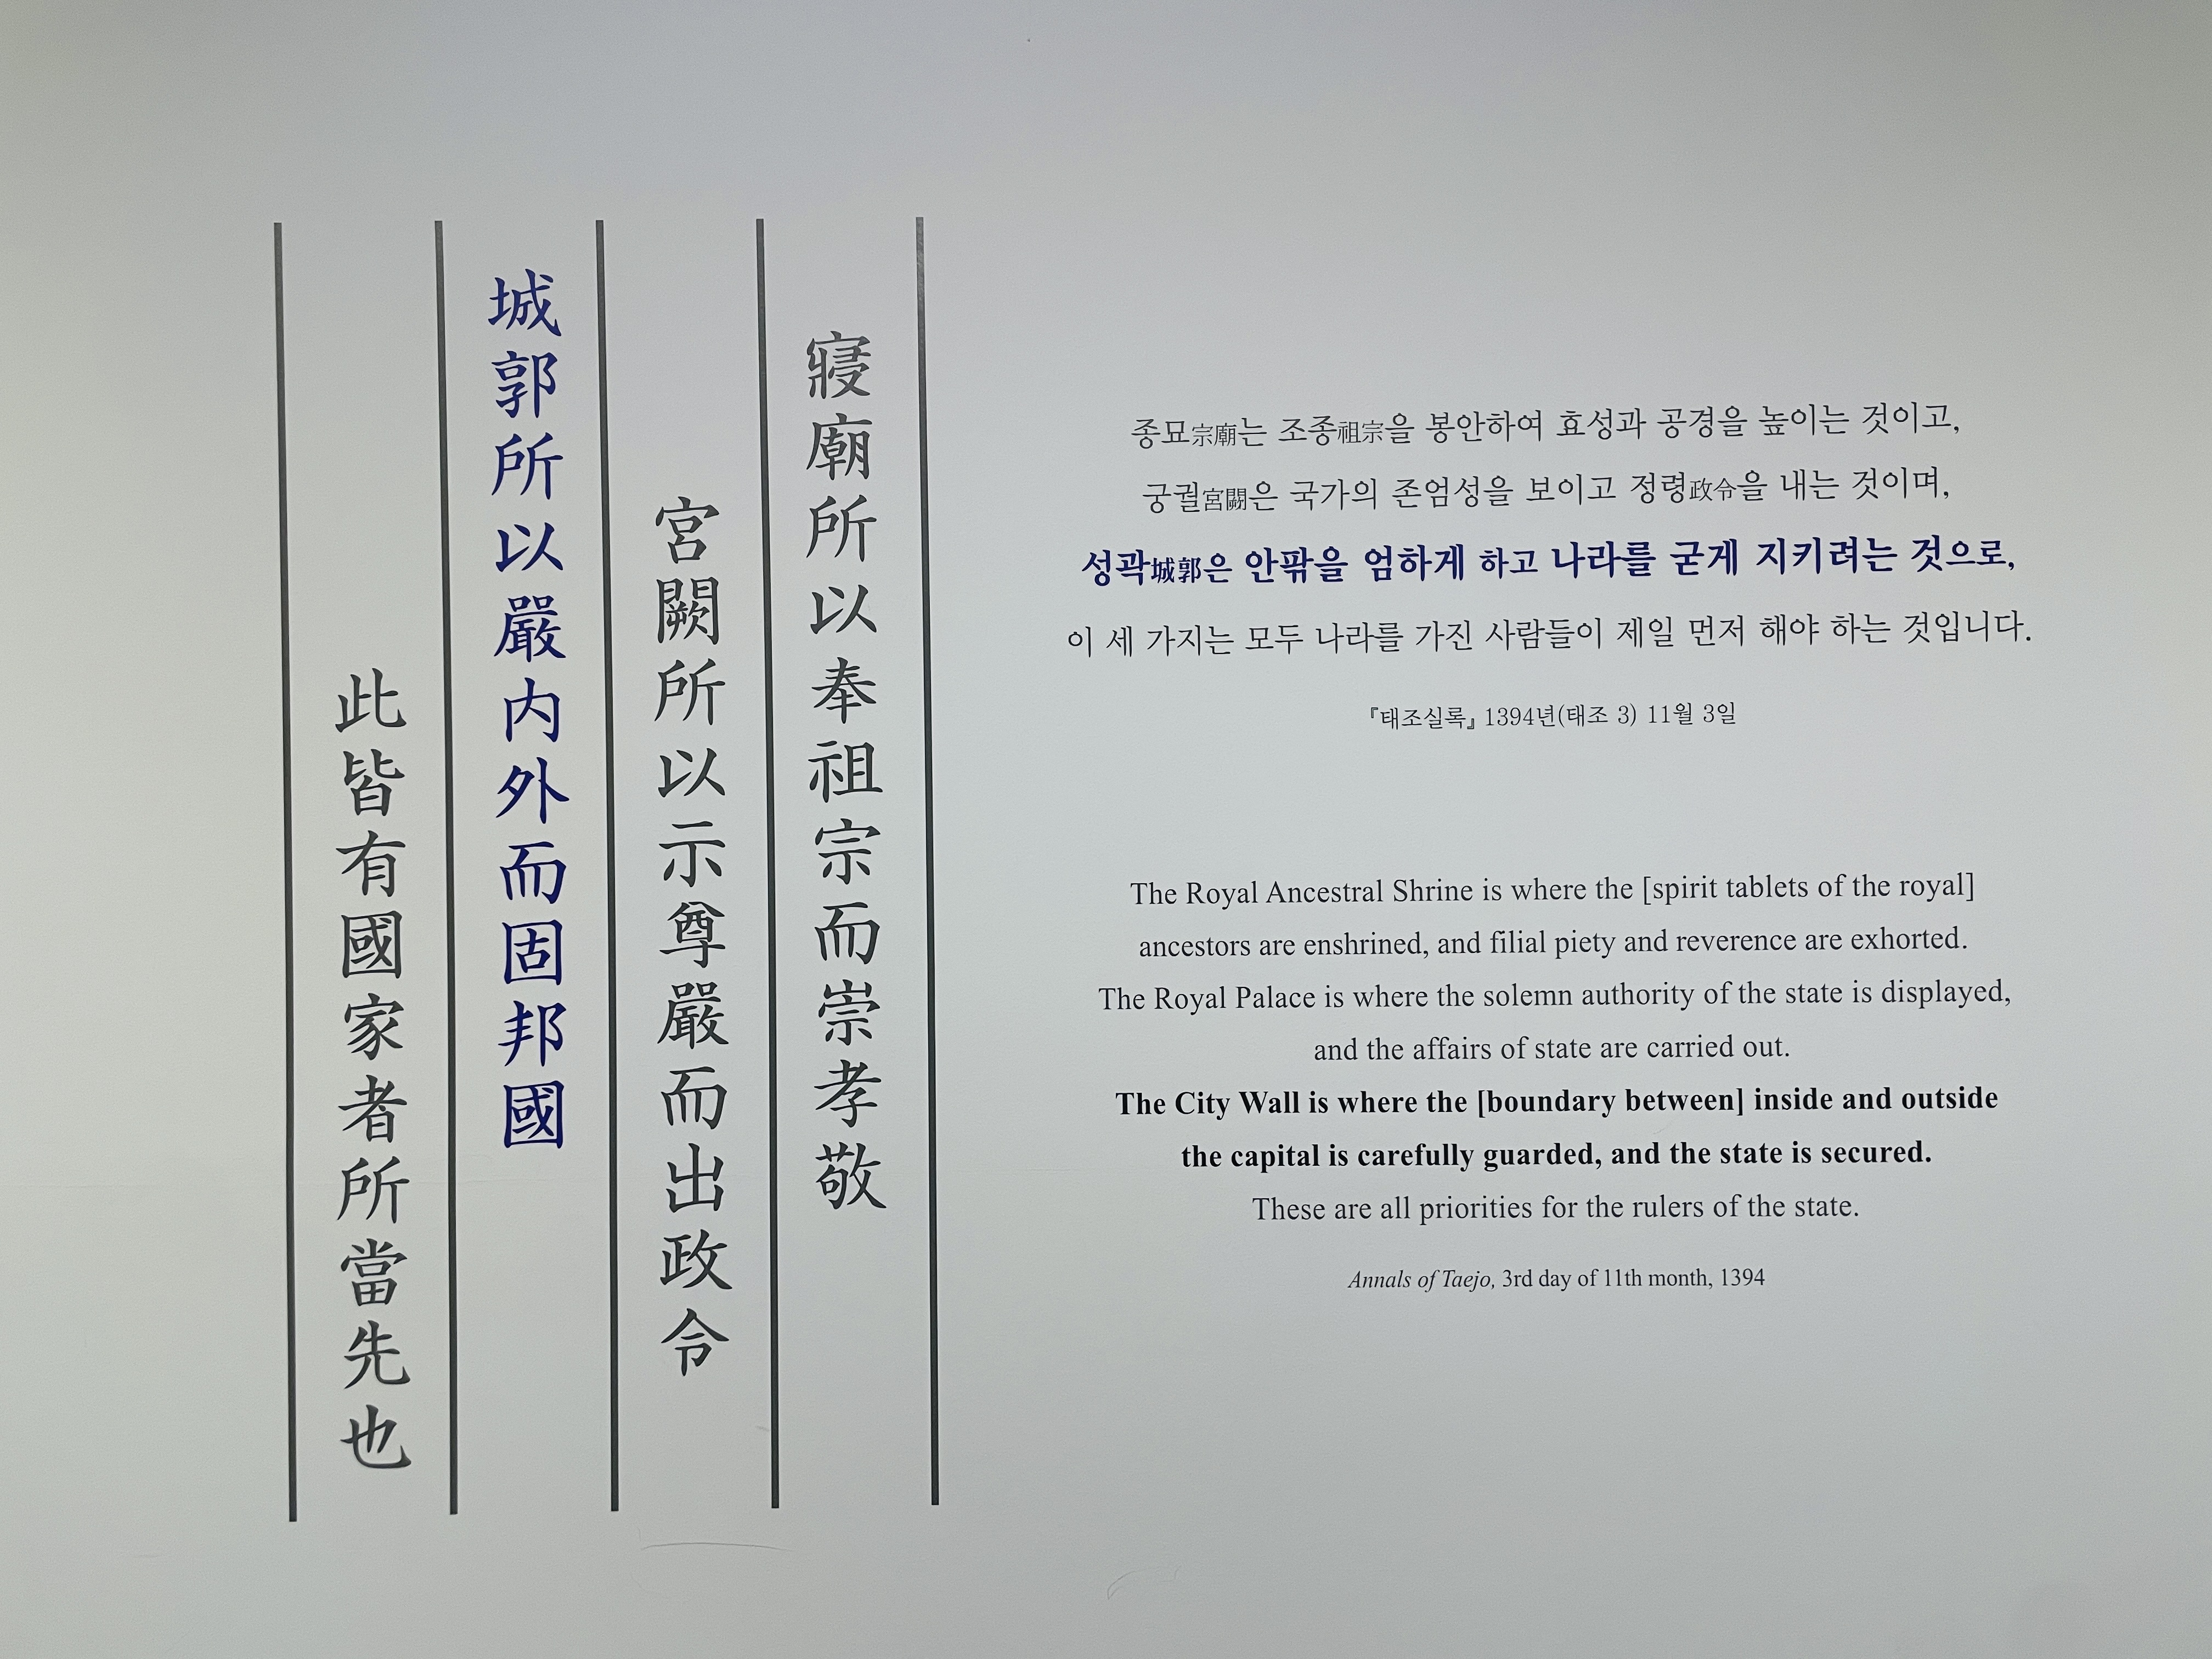 寢廟所以奉祖宗而崇孝敬
宮闕所以示尊嚴而出政令
城郭所以嚴内外而固邦國
此皆有國家者所當先也
종묘宗廟는 조종祖宗을 봉안하여 효성과 공경을 높이는 것이고,
궁궐宮闕은 국가의 존엄성을 보이고 정령政令을 내는 것이며,
성곽城郭은 안팎을 엄하게 하고 나라를 굳게 지키려는 것으로,
이 세 가지는 모두 나라를 가진 사람들이 제일 먼저 해야 하는 것입니다.
『태조실록』 1394년(태조 3) 11월 3일
The Royal Ancestral Shrine is where the [spirit tablets of the royal]
ancestors are enshrined, and filial piety and reverence are exhorted.
The Royal Palace is where the solemn authority of the state is displayed,
and the affairs of state are carried out.
The City Wall is where the [boundary between] inside and outside
the capital is carefully guarded, and the state is secured.
These are all priorities for the rulers of the state.
Annals of Taejo, 3rd day of 11th month, 1394